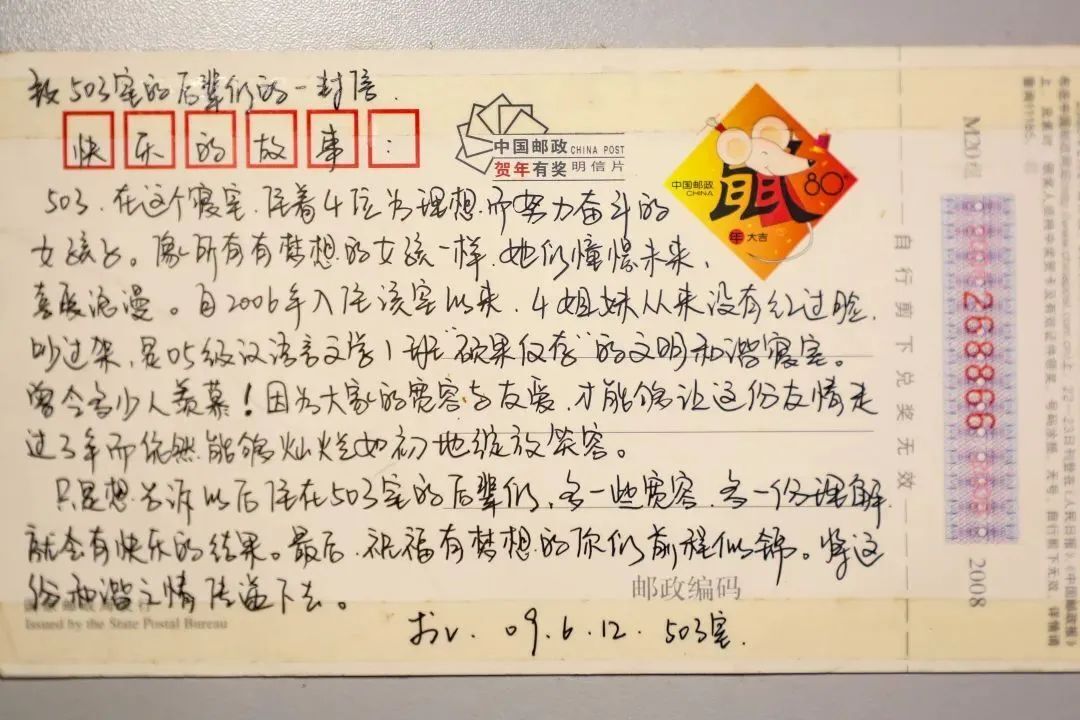 致503室的后辈们的一封信.
快乐的故事:
中国邮政 CHINA POST
贺年有奖 明信片
中国邮政
CHINA
鼠
80分
年 大吉
503.在这个寝室,住着4位为理想而努力奋斗的
女孩子。像所有有梦想的女孩一样,她们憧憬未来,
喜爱浪漫。自2006年入住该室以来,4姐妹从来没有红过脸,
吵过架,是05级汉语言文学1班硕果仅存的文明和谐寝室。
曾令多少人羡慕!因为大家的宽容与友爱,才能够让这份友情走
过3年而依然能够灿烂如初地绽放笑容。
只是想告诉以后住在503室的后辈们,多一些宽容,多一份理解,
就会有快乐的结果。最后,祝福有梦想的你们前程似锦。将这
份和谐之情传递下去。
邮政编码
Issued by the State Postal Bureau
09.6.12. 503室.
自行剪下兑奖无效
268866
2008